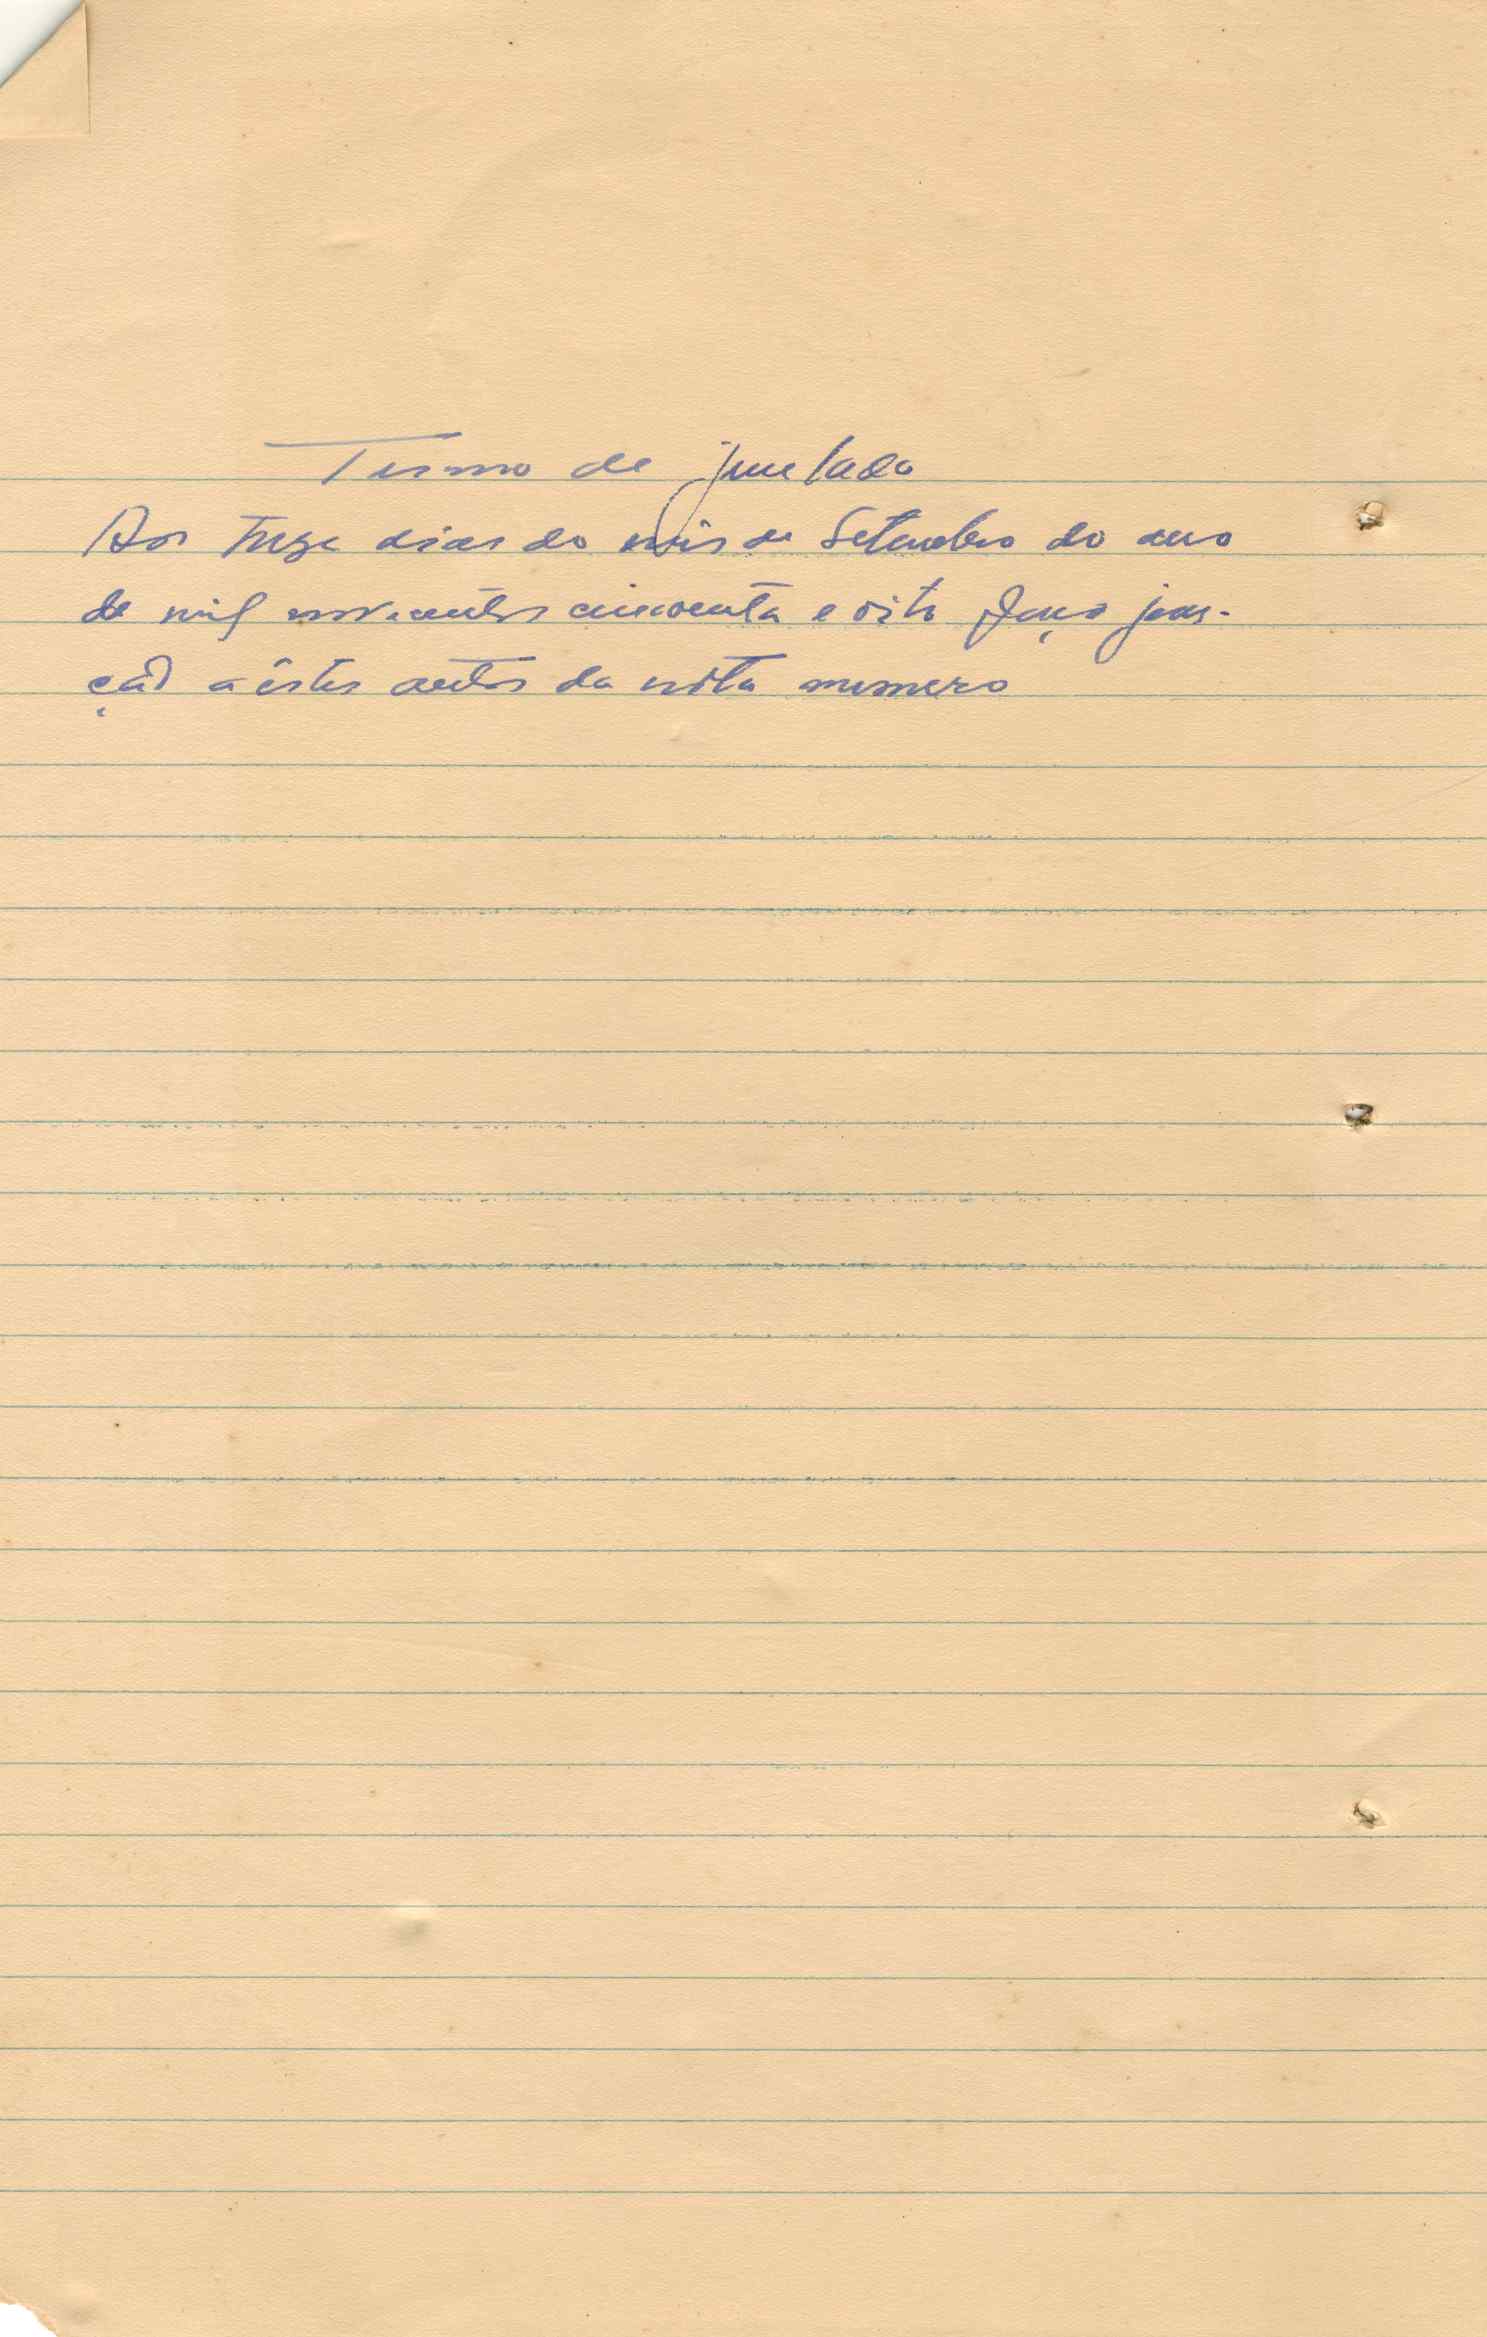 Termo de juntada
Aos treze dias do mês de Setembro do ano
de mil novecentos cincoenta e oito faço jun-
ção a êstes autos da nota numero